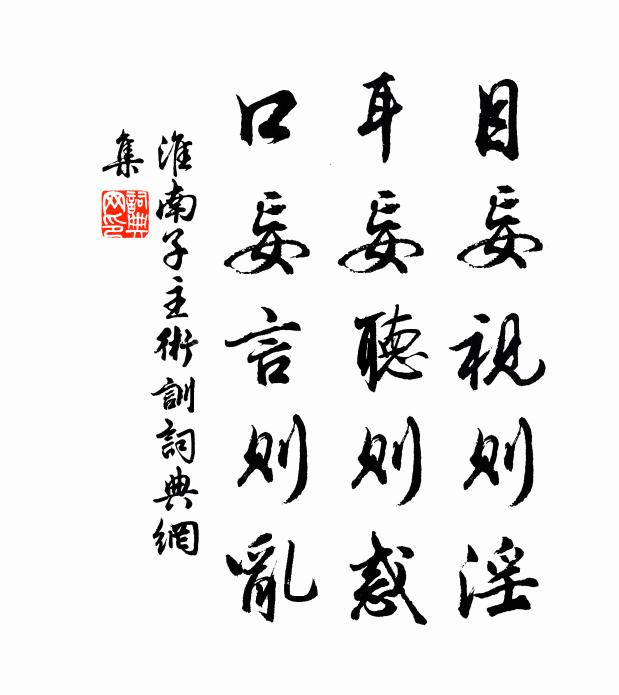 目妄視則淫
耳妄聽則惑
口妄言則亂
淮南子主術訓詞典網
集
詞典網印